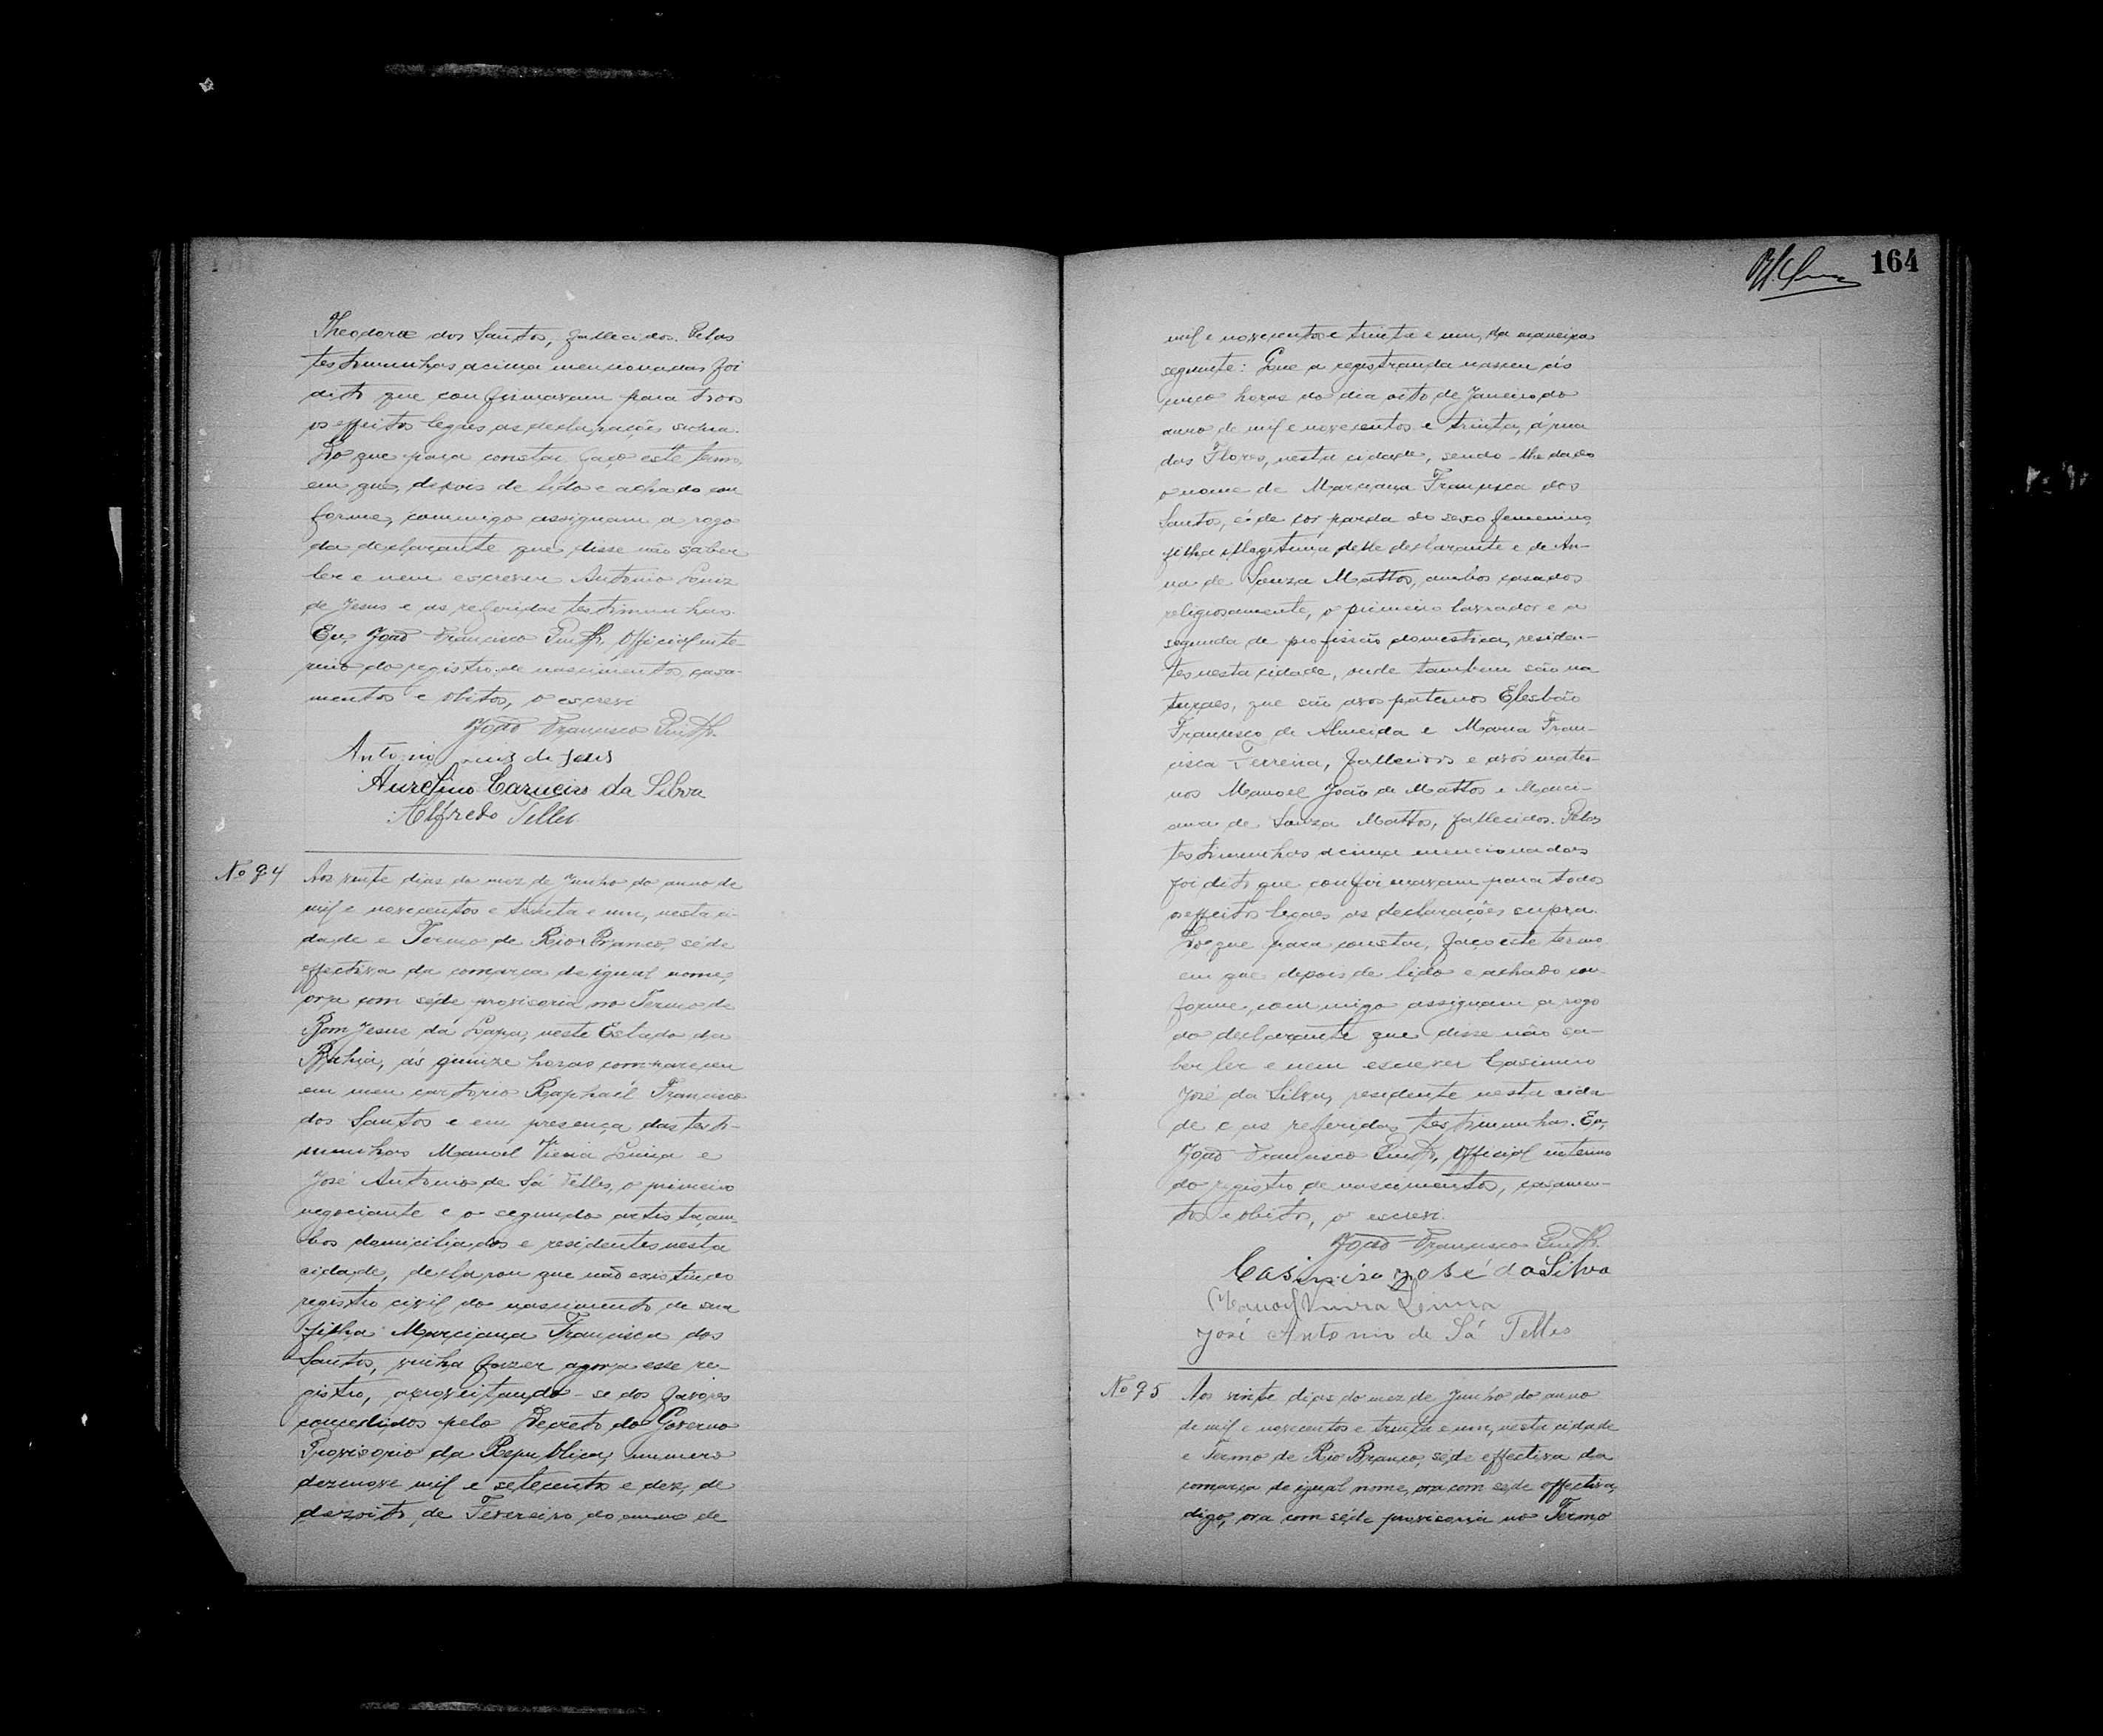 Theodora dos Santos, fallecidos. Pelas
testimunhas acima mencionadas foi
dito que confirmavam para todos
os effeitos legaes as declarações supra.
Do que para constar, faço este termo
em que, depois de lido e achado con
forme, commigo assignam a rogo
da declarante que disse não saber
ler e nem escrever Antonio Luiz
de Jesus e as referidas testimunhas.
Eu, João Francisco, Official inte-
rino do registro de nascimentos, casa-
mentos e obitos, o escrevi
João Francisco
Antonio Luis de Jesus
Aurelino Carneiro da Silva
Alfredo Telles
Nº 94
Aos vinte dias do mez de Junho do anno de
mil e novecentos e trinta e um, nesta ci-
dade e Termo de Rio Branco, séde
effectiva da comarca de igual nome,
ora com séde provisoria no Termo de
Bom Jesus da Lapa, neste Estado da
Bahia, ás quinze horas compareceu
em meu cartorio Raphael Francisco
dos Santos e em presença das testi-
munhas Manoel Vieira Lima e
José Antonio de Sá Telles, o primeiro
negociante e o segundo artista, am-
bos domiciliados e residentes nesta
cidade, declarou que não existindo
registro civil do nascimento de sua
filha Marciana Francisca dos
Santos, vinha fazer agora esse re-
gistro, aproveitando-se dos favores
concedidos pelo Decreto do Governo
Provisorio da Republica, numero
dezenove mil e setecentos e dez, de
dezoito, de Fevereiro do anno de
164
mil e novecentos e trinta e um, da maneira
seguinte: Que a registranda nasceu ás
cinco horas do dia oito de Janeiro do
anno de mil e novecentos e trinta, á rua
das Flores, nesta cidade, sendo-lhe dado
o nome de Marciana Francisca dos
Santos, é de cor parda do sexo femenino,
filha illegitima delle declarante e de An-
na de Souza Mattos, ambos casados
religiosamente, o primeiro lavrador e a
segunda de profissão domestica, residen-
tes nesta cidade, onde tambem são na
turaes, que são avos paternos Elesbão
Francisco de Almeida e Maria Fran-
cisca Ferreira, fallecidos e avós mater-
nos Manoel João de Mattos e Marci-
ana de Souza Mattos, fallecidos. Pelas
testimunhas acima mencionadas
foi dito que confirmavam para todos
os effeitos legaes as declarações supra.
Do que para constar, faço este termo
em que depois de lido e achado con-
forme, commigo assignam a rogo
do declarante que disse não sa-
ber ler e nem escrever Casimiro
José da Silva, residente nesta cida-
de e as referidas testimunhas. Eu,
João Francisco, Official interino
do registro de nascimentos, casamen-
tos e obitos, o escrevi.
João Francisco
Casimiro José da Silva
Manoel Vieira Lima
José Antonio de Sá Telles
Nº 95
Aos vinte dias do mez de Junho do anno
de mil e novecentos e trinta e um, nesta cidade
e Termo de Rio Branco, séde effectiva da
comarca de igual nome, ora com sede effectiva,
digo, ora com séde provisoria no Termo